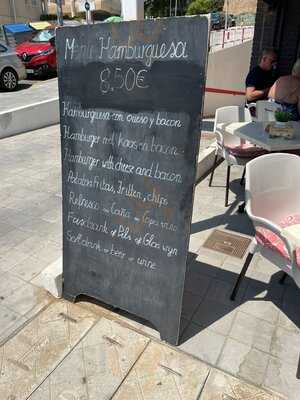 Menú Hamburguesa
8,50€
Hamburguesa con queso y bacon
Hamburger met kaas en bacon
Hamburger with cheese and bacon
Patatas fritas, Frieten, chips
Refresco - Caña - Copa vino
Frisdrank of Pils of Glas wijn
Soft drink - beer - wine